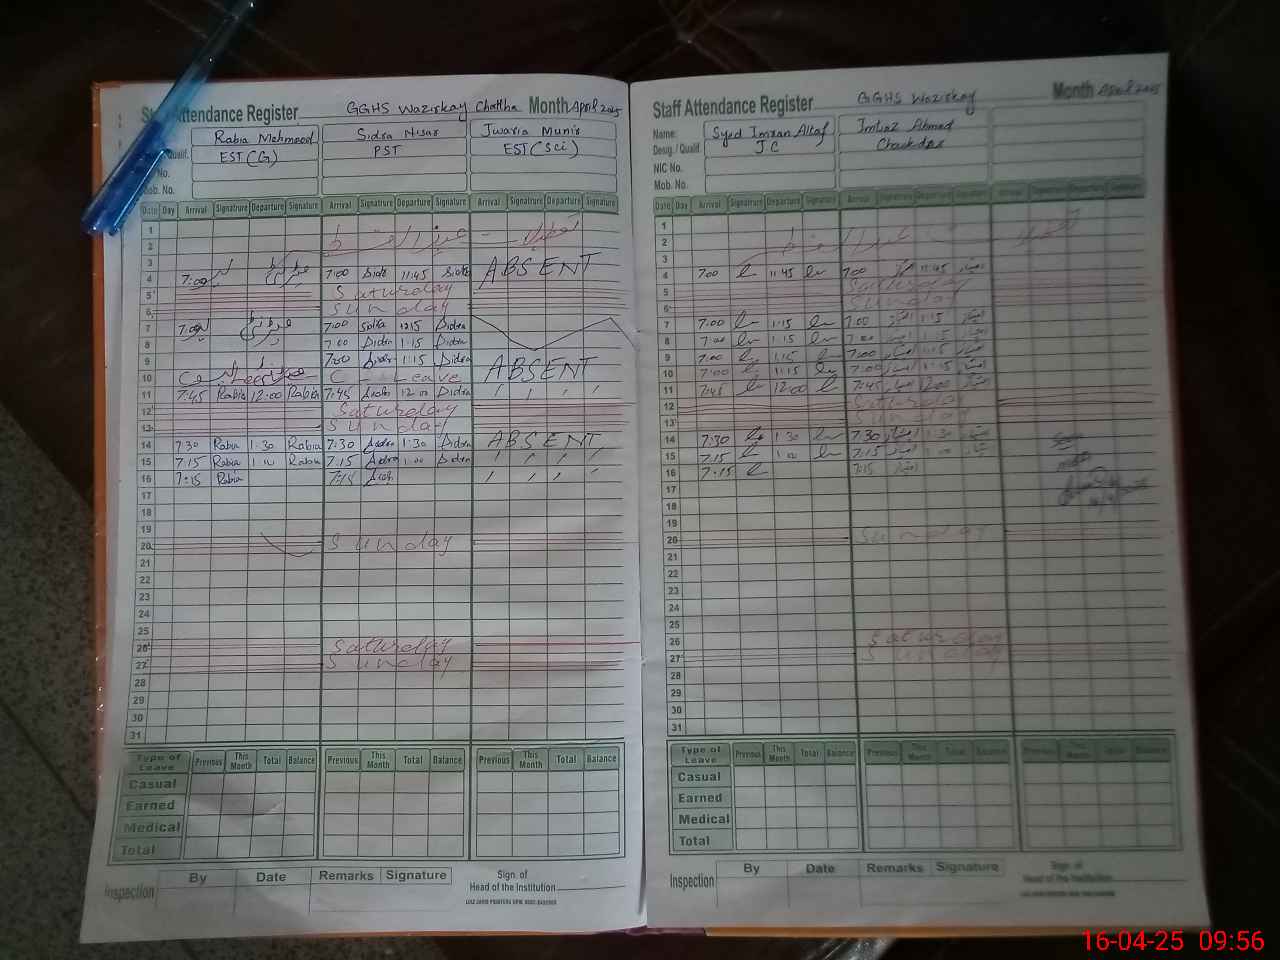 Staff Attendance Register GGHS Wazirkay Chattha Month April 2025
Rabia Mehmood Sidra Nisar Jwaria Munir
Qualif. EST(G) PST EST(Sci)
No.
Mob. No.
Date Day Arrival Signatrure Departure Signature Arrival Signatrure Departure Signature Arrival Signatrure Departure Signature
1
2
3
4 7:00 7:00 Sidr 11:45 Sidr ABSENT
5 Saturday
6 Sunday
7 7:00 7:00 Sidra 1215 Sidra
8 7:00 Sidra 1:15 Sidra
9 7:00 Sidra 1:15 Sidra ABSENT
10 C Leave C - Leave
11 7:45 Rabia 12:00 Rabia 7:45 Sidra 12:00 Sidra ' ' ' '
12 Saturday
13 Sunday
14 7:30 Rabia 1:30 Rabia 7:30 Sidra 1:30 Sidra ABSENT
15 7:15 Rabia 1:00 Rabia 7:15 Sidra 1:00 Sidra ' ' ' '
16 7:15 Rabia Sidr ' ' ' '
17
18
19
20 Sunday
21
22
23
24
25
26 Saturday
27 Sunday
28
29
30
31
Type of Leave Previous This Month Total Balance Previous This Month Total Balance Previous This Month Total Balance
Casual
Earned
Medical
Total
Inspection By Date Remarks Signature Sign. of Head of the Institution
Staff Attendance Register GGHS Wazirkay Month April 2025
Name: Syed Imran Altaf Imtiaz Ahmed
Desig. / Qualif. J C Chowkidar
NIC No.
Mob. No.
Date Day Arrival Signatrure Departure Signature Arrival Signatrure Departure Signature Arrival Signatrure Departure Signature
1
2
3
4 7:00 11:45 7:00 11:45
5 Saturday
6 Sunday
7 7:00 1:15 7:00 1:15
8 7:00 1:15 1:15
9 7:00 1:15 7:00 1:15
10 7:00 1:15 7:00 1:15
11 7:45 12:00 7:45 12:00
12 Saturday
13 Sunday
14 7:30 1:30 7:30 1:30
15 7:15 1:00 7:15 1:00
16 7:15 7:15
17
18
19
20 Sunday
21
22
23
24
25
26 Saturday
27 Sunday
28
29
30
31
Type of Leave Previous This Month Total Balance Previous This Month Total Balance This Month Total Balance
Casual
Earned
Medical
Total
Inspection By Date Remarks Signature Sign. of Head of the Institution
16-04-25 09:56